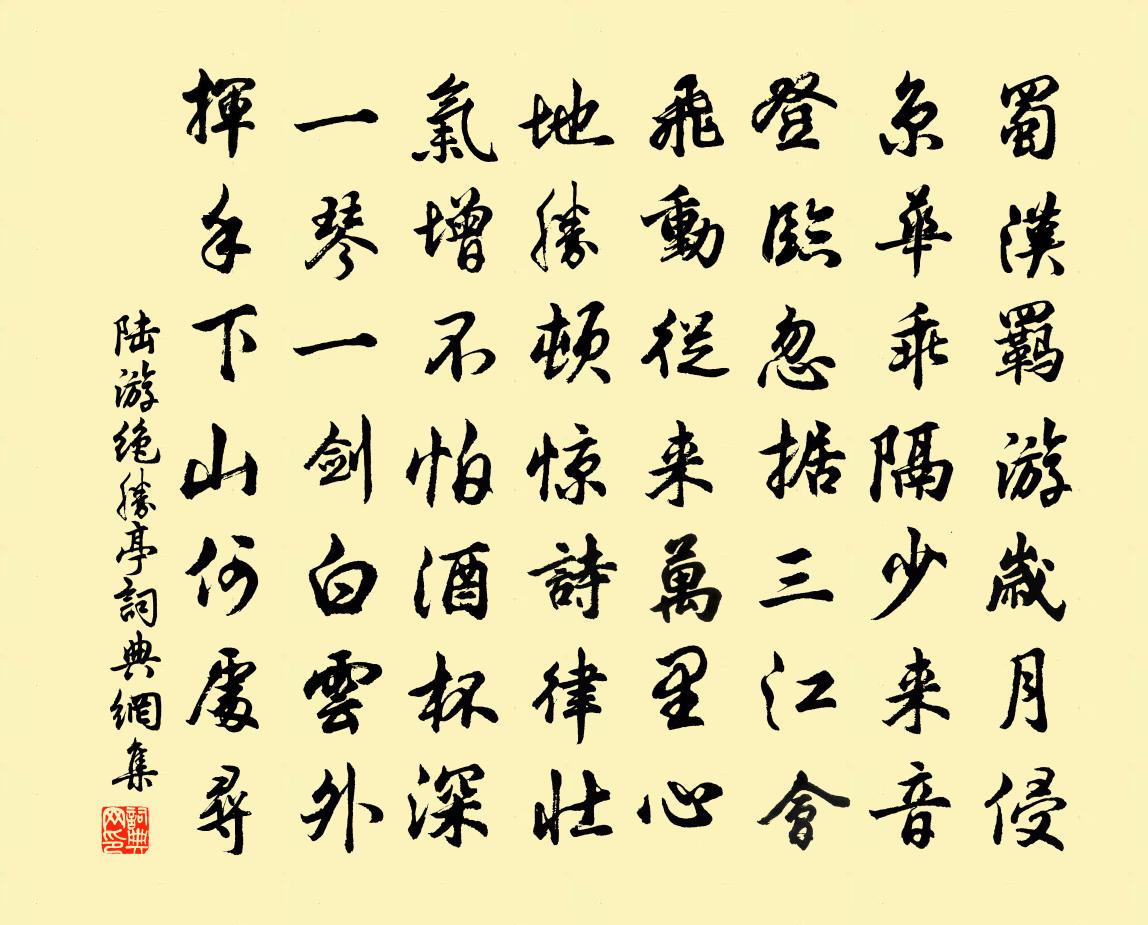 蜀漢羈游歲月侵
京華乖隔少来音
登臨忽据三江會
飛動從来萬里心
地勝頓惊詩律壯
氣增不怕酒杯深
一琴一剑白雲外
揮手下山何處尋
陆游绝勝亭詞典網集
詞典網印